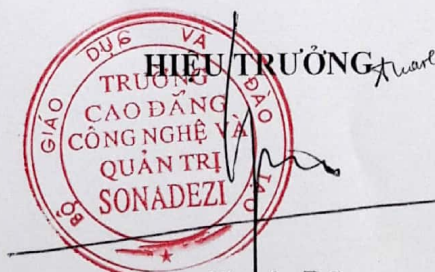 HIỆU TRƯỞNG
BỘ GIÁO DỤC VÀ ĐÀO TẠO
TRƯỜNG
CAO ĐẲNG
CÔNG NGHỆ VÀ
QUẢN TRỊ
SONADEZI